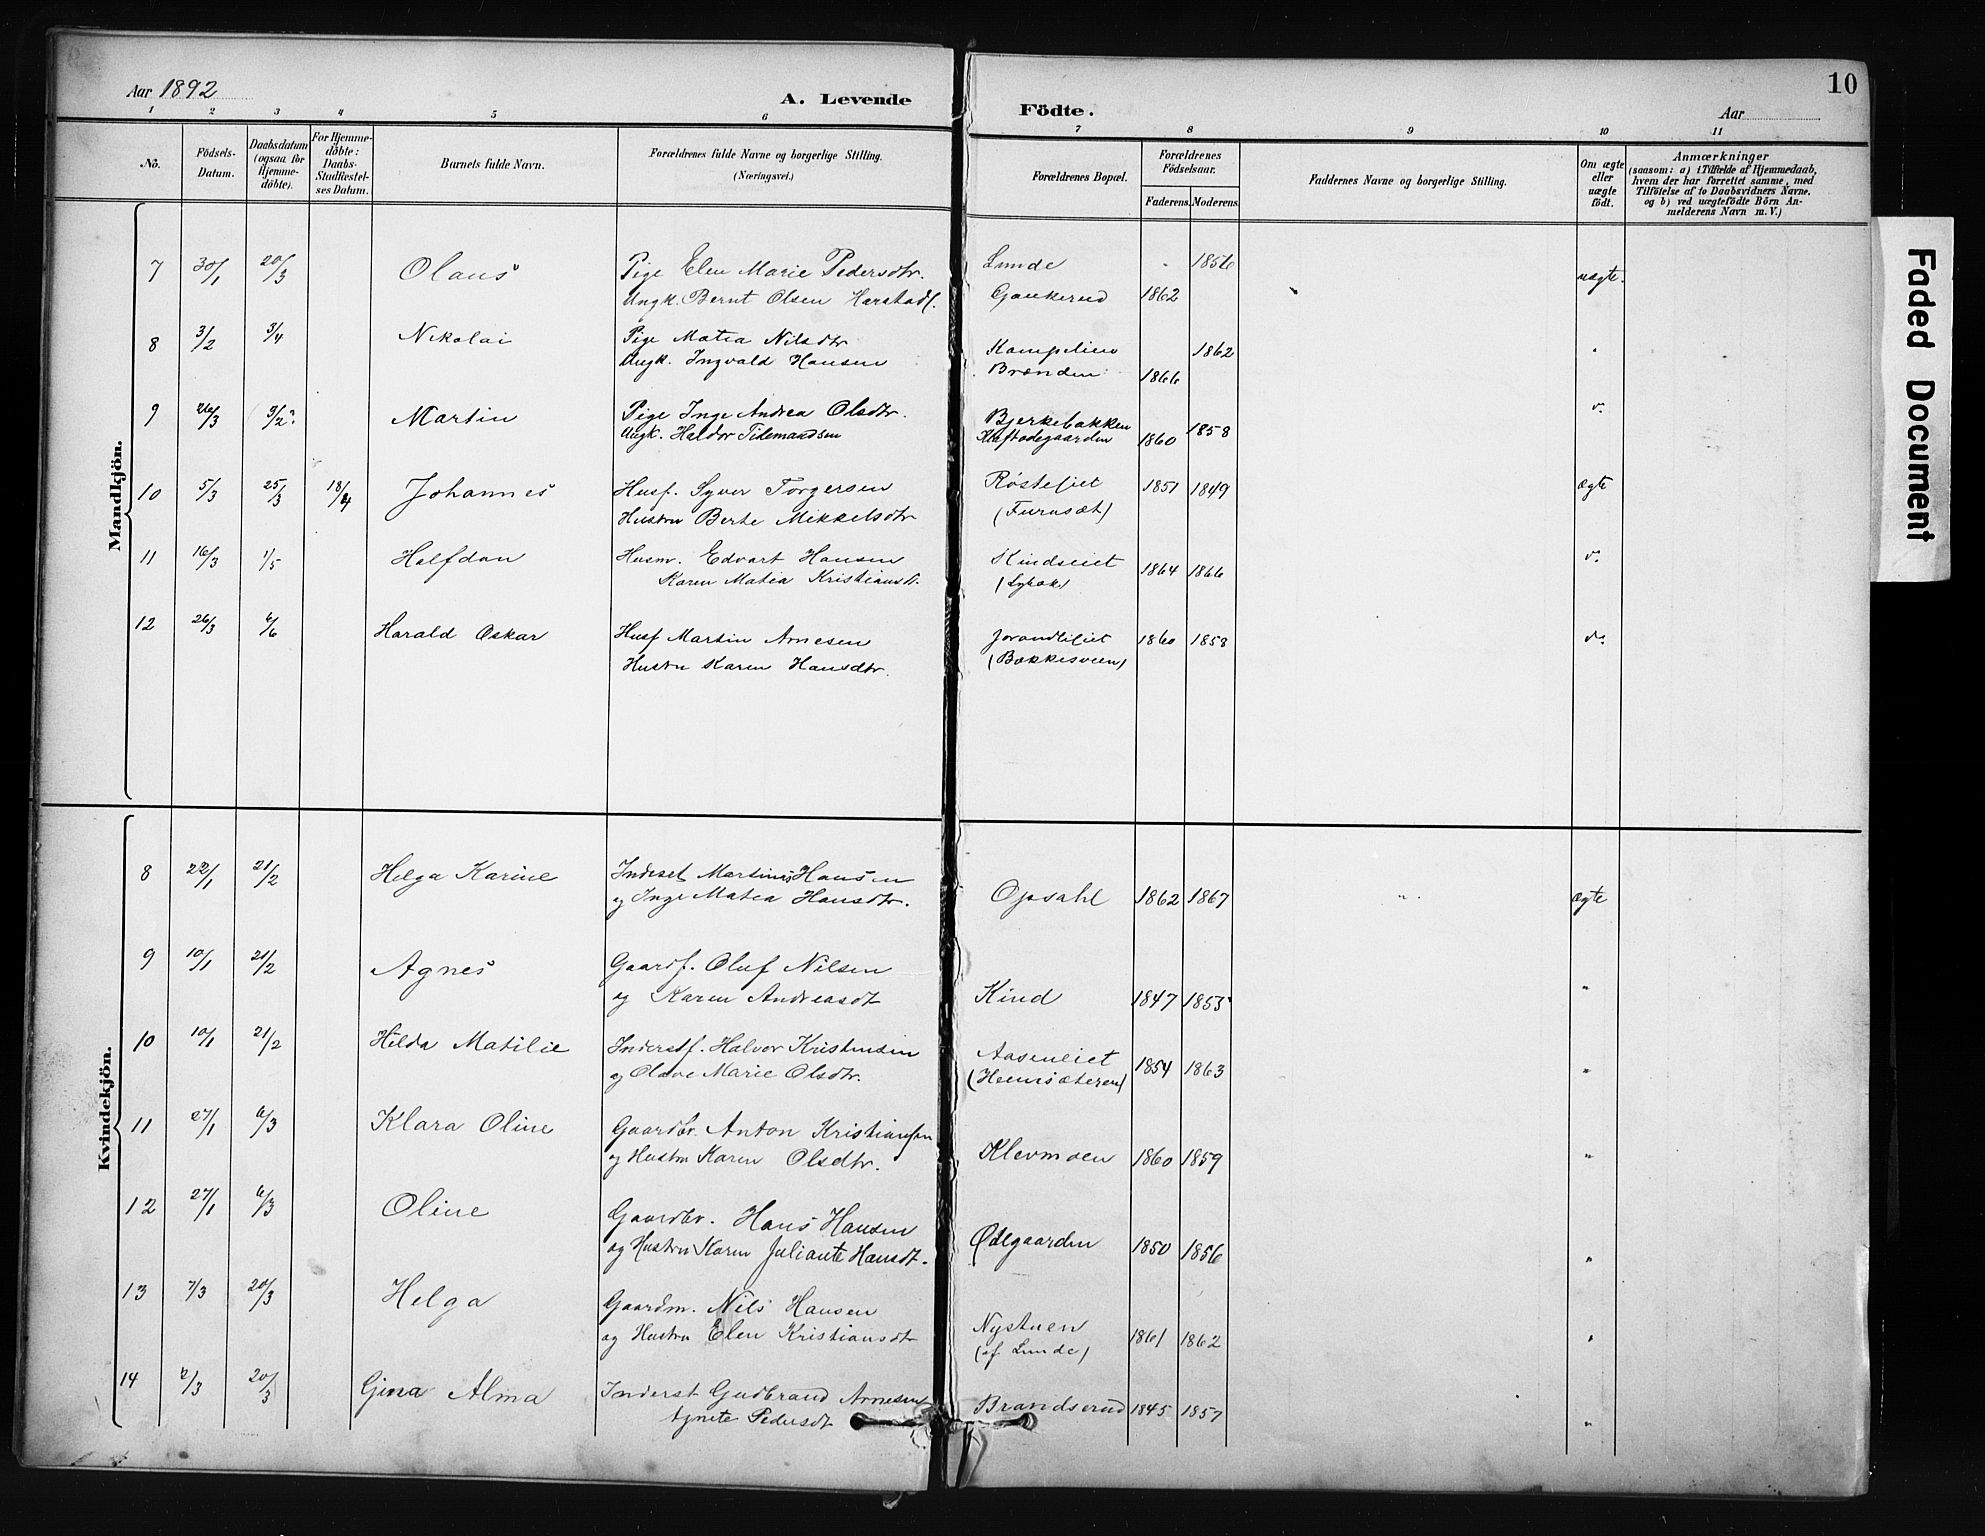 Aar 1892
A. Levende
Födte.
Aar
10
1 2 3 4 5 6 7 8 9 10 11
No.
Födsels-
Datum.
Daabsdatum
(ogsaa for
Hjemme-
döbte).
For Hjemme-
döbte:
Daabs-
Stadfæstel-
ses Datum.
Barnets fulde Navn.
Forældrenes fulde Navne og borgerlige Stilling.
(Næringsvei.)
Forældrenes Bopæl.
Forældrenes
Födselsaar.
Faderens. Moderens.
Faddernes Navne og borgerlige Stilling.
Om ægte
eller
uægte
födt.
Anmærkninger
(saasom: a) i Tilfælde af Hjemmedaab,
hvem der har forrettet samme, med
Tilföielse af to Daabsvidners Navne,
og b) ved uægtefödte Börn An-
melderens Navn m. V.)
Mandkjön.
7 30/1 20/3 Olaus Pige Elen Marie Pedersdtr. Lunde 1856 uægte.
Ungk. Bernt Olsen Harstadl. Gaukerud 1862
8 3/2 3/4 Nikolai Pige Matea Nilsdtr 1862 "
Ungk. Ingvald Hansen Brænden 1866
9 26/3 Martin Pige Inge Andrea Olsdtr. Bjerkebakken 1858 do
Ungk. Haldor Tidemandsen 1860
10 5/3 25/3 18/4 Johannes Husf. Syver Torgersen Røstefiet 1851 1849 ægte
Hustru Berte Mikkelsdtr (Furusæt)
11 16/3 1/5 Halfdan Husm. Edvart Hansen Kindseiet 1864 1866 do
Karen Matea Kristiansdt.
12 26/3 6/6 Harald Oskar Husf Martin Arnesen 1860 1858 do
Hustru Karen Hansdtr. (Bækkesveen)
Kvindekjön.
8 22/1 21/2 Helga Karine Inderst Martinus Hansen
og Inge Matea Hansdtr. Opsahl 1862 1867 " ægte
9 10/1 21/2 Agnes Gaardf. Oluf Nilsen
og Karen Andreasdt Kind 1847 1853 "
10 10/1 21/2 Hilda Matilie Inderstf. Halvor Kristensen Aaseneiet 1854 1863 "
og Olave Marie Olsdtr. (Heimsæteren)
11 27/1 6/3 Klara Oline Gaardbr. Anton Kristiansen
og Hustru Karen Olsdtr. Klevmoen 1860 1859 "
12 27/1 6/3 Oline Gaardbr. Hans Hansen
og Hustru Karen Juliante Hansdt. Ødegaarden 1850 1856 "
13 7/3 20/3 Helga Gaardm. Nils Hansen
og Hustru Elen Kristiansdt Nystuen 1861 1862 "
(af Lunde)
14 2/3 20/3 Gina Alma Inderst Gudbrand Arnesen Brandserud 1845 1857 "
Agnete Pedersdt
Faded Document